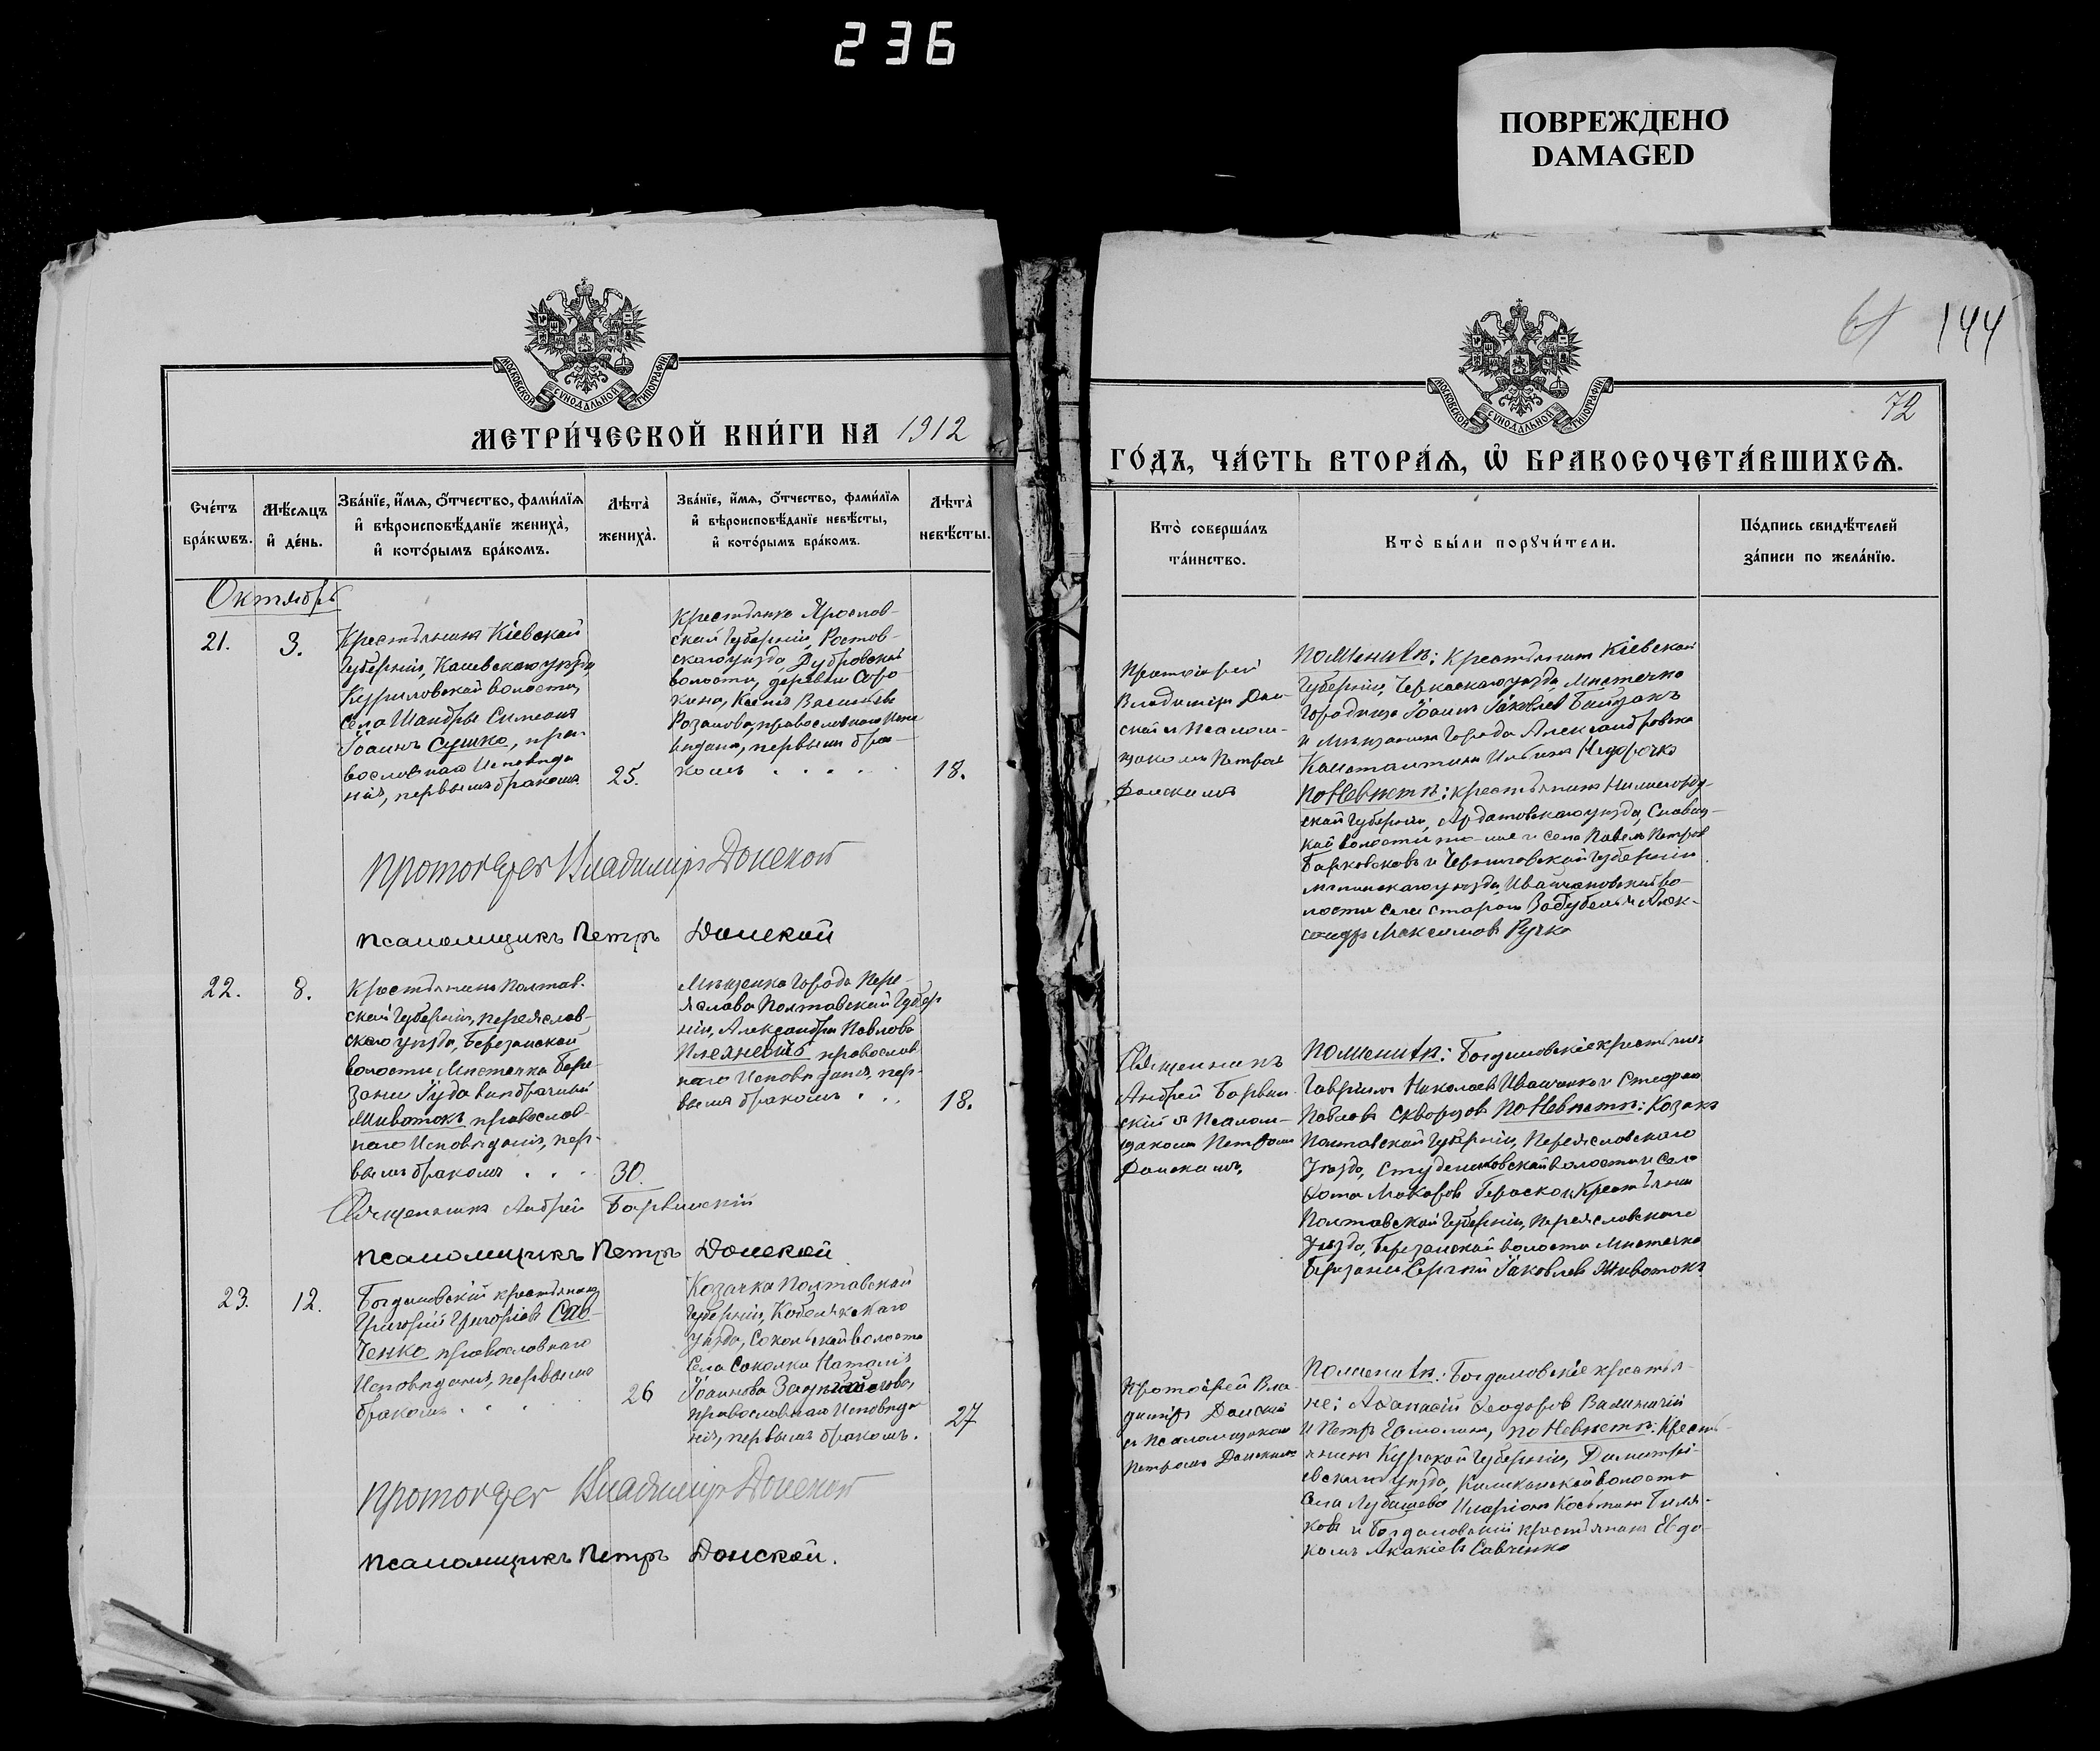 236
ПОВРЕЖДЕНО
DAMAGED
МОСКОВСКОЙ СѴНОДАЛЬНОЙ ТИПОГРАФІИ
МЕТРИ́ЧЕСКОЙ КНИ́ГИ НА 1912
Сче́тъ
бра́кѡвъ.
Мѣ́сяцъ
и҆ де́нь.
Зва́нїе, и҆́мѧ, ѻ҆́тчество, фами́лїѧ
и҆ вѣроисповѣ́данїе жениха̀,
и҆ кото́рымъ бра́комъ.
Лѣта̀
жениха̀.
Зва́нїе, и҆́мѧ, ѻ҆́тчество, фами́лїѧ
и҆ вѣроисповѣ́данїе невѣ́сты,
и҆ кото́рымъ бра́комъ.
Лѣта̀
невѣ́сты.
Октябрь
21.
3.
Крестьянинъ Кіевской
Губерніи, Каневскаго уѣзда,
волости,
села Шандры Симеонъ
Іоаннъ Сушко, пра-
вославнаго Исповѣда
нія, первымъ бракомъ
25.
Крестьянка Яросл​ав-
ской Губерніи, Ростов-
скаго уѣзда, Дубровской
волости, деревни Соро
кина, Васильева
Розанова, православнаго Испо
вѣданія, первымъ бра-
комъ . . . . .
18.
Протоіерей Владиміръ Донской
Псаломщикъ Петръ Донской
22.
8.
Крестьянинъ Полтав-
ской Губерніи, Переяслав-
скаго уѣзда, Березанской
волости Мѣстечка Бере-
зани Іуда внѣбрачный
Животокъ православ-
наго Исповѣданія, пер-
вымъ бракомъ . . .
30.
Мѣщанка Города Пере-
яслава Полтавской Губер
ніи, Александра Павлова
православ
наго Исповѣданія, пер-
вымъ бракомъ . . .
18.
Священникъ Андрей Барвинскій
Псаломщикъ Петръ Донской
23.
12.
Богдановскій крестьянинъ
Григорій Григоріевъ Сав-
ченко православнаго
Исповѣданія, первымъ
бракомъ . . . .
26
Козачка Полтавской
Губерніи, Кобелякскаго
уѣзда, Сокольской волости
Села Соколки Наталія
Іоаннова
православнаго Исповѣда
нія, первымъ бракомъ.
27
Протоіерей Владиміръ Донской
Псаломщикъ Петръ Донской.
61 144
72
МОСКОВСКОЙ СѴНОДАЛЬНОЙ ТИПОГРАФІИ
ГО́ДЪ, ЧА́СТЬ ВТОРА́Ѧ, Ѡ҆ БРАКОСОЧЕТА́ВШИХСѦ.
Кто̀ соверша́лъ
та́инство.
Кто̀ бы́ли порꙋчи́тели.
По́дпись свидѣ́телей
за́писи по жела́нїю.
Протоіерей
Владиміръ Дон-
ской и Псалом-
щикомъ Петромъ
Донскимъ
По Женихѣ: Крестьянинъ Кіевской
Губерніи, Черкасскаго уѣзда, Мѣстечка
Городища Іоаннъ Іаковлевъ Байдакъ
и мѣщанинъ города Александровска
Константинъ
По Невѣстѣ: крестьянинъ Нижегород-
ской Губерніи, Ардатовскаго уѣзда,
кой волости то-же и села Павелъ Петровъ
и Черниговской Губерніи
Мглинскаго уѣзда, во-
лости села Старой Алек-
сандръ Максимовъ Ручка
Священникъ
Андрей Барвин-
скій и Псалом-
щикомъ Петромъ
Донскимъ,
По Женихѣ: Богдановскіе крестьяне
Гавріилъ Николаевъ Иванченко и Стефанъ
Павловъ Скворцовъ По Невѣстѣ: Козакъ
Полтавской Губерніи, Переяславскаго
Уѣзда, Студениковской волости и Села
Ѳома Макаровъ Гераско и Крестьянинъ
Полтавской Губерніи, Переяславскаго
Уѣзда, Березанской волости Мѣстечка
Березани Сергѣй Іаковлевъ Животокъ
Протоіерей Вла-
диміръ Донской
и Псаломщикомъ
Петромъ Донскимъ
По Женихѣ: Богдановскіе крестья-
не: Аѳанасій Ѳеодоровъ
и Петръ По Невѣстѣ: Кресть-
янинъ Курской Губерніи, Димитрі-
евскаго уѣзда, волости
Села Иларіонъ Косминъ
ковъ и Богдановскій крестьянинъ Евдо-
кимъ Акакіевъ Савченко